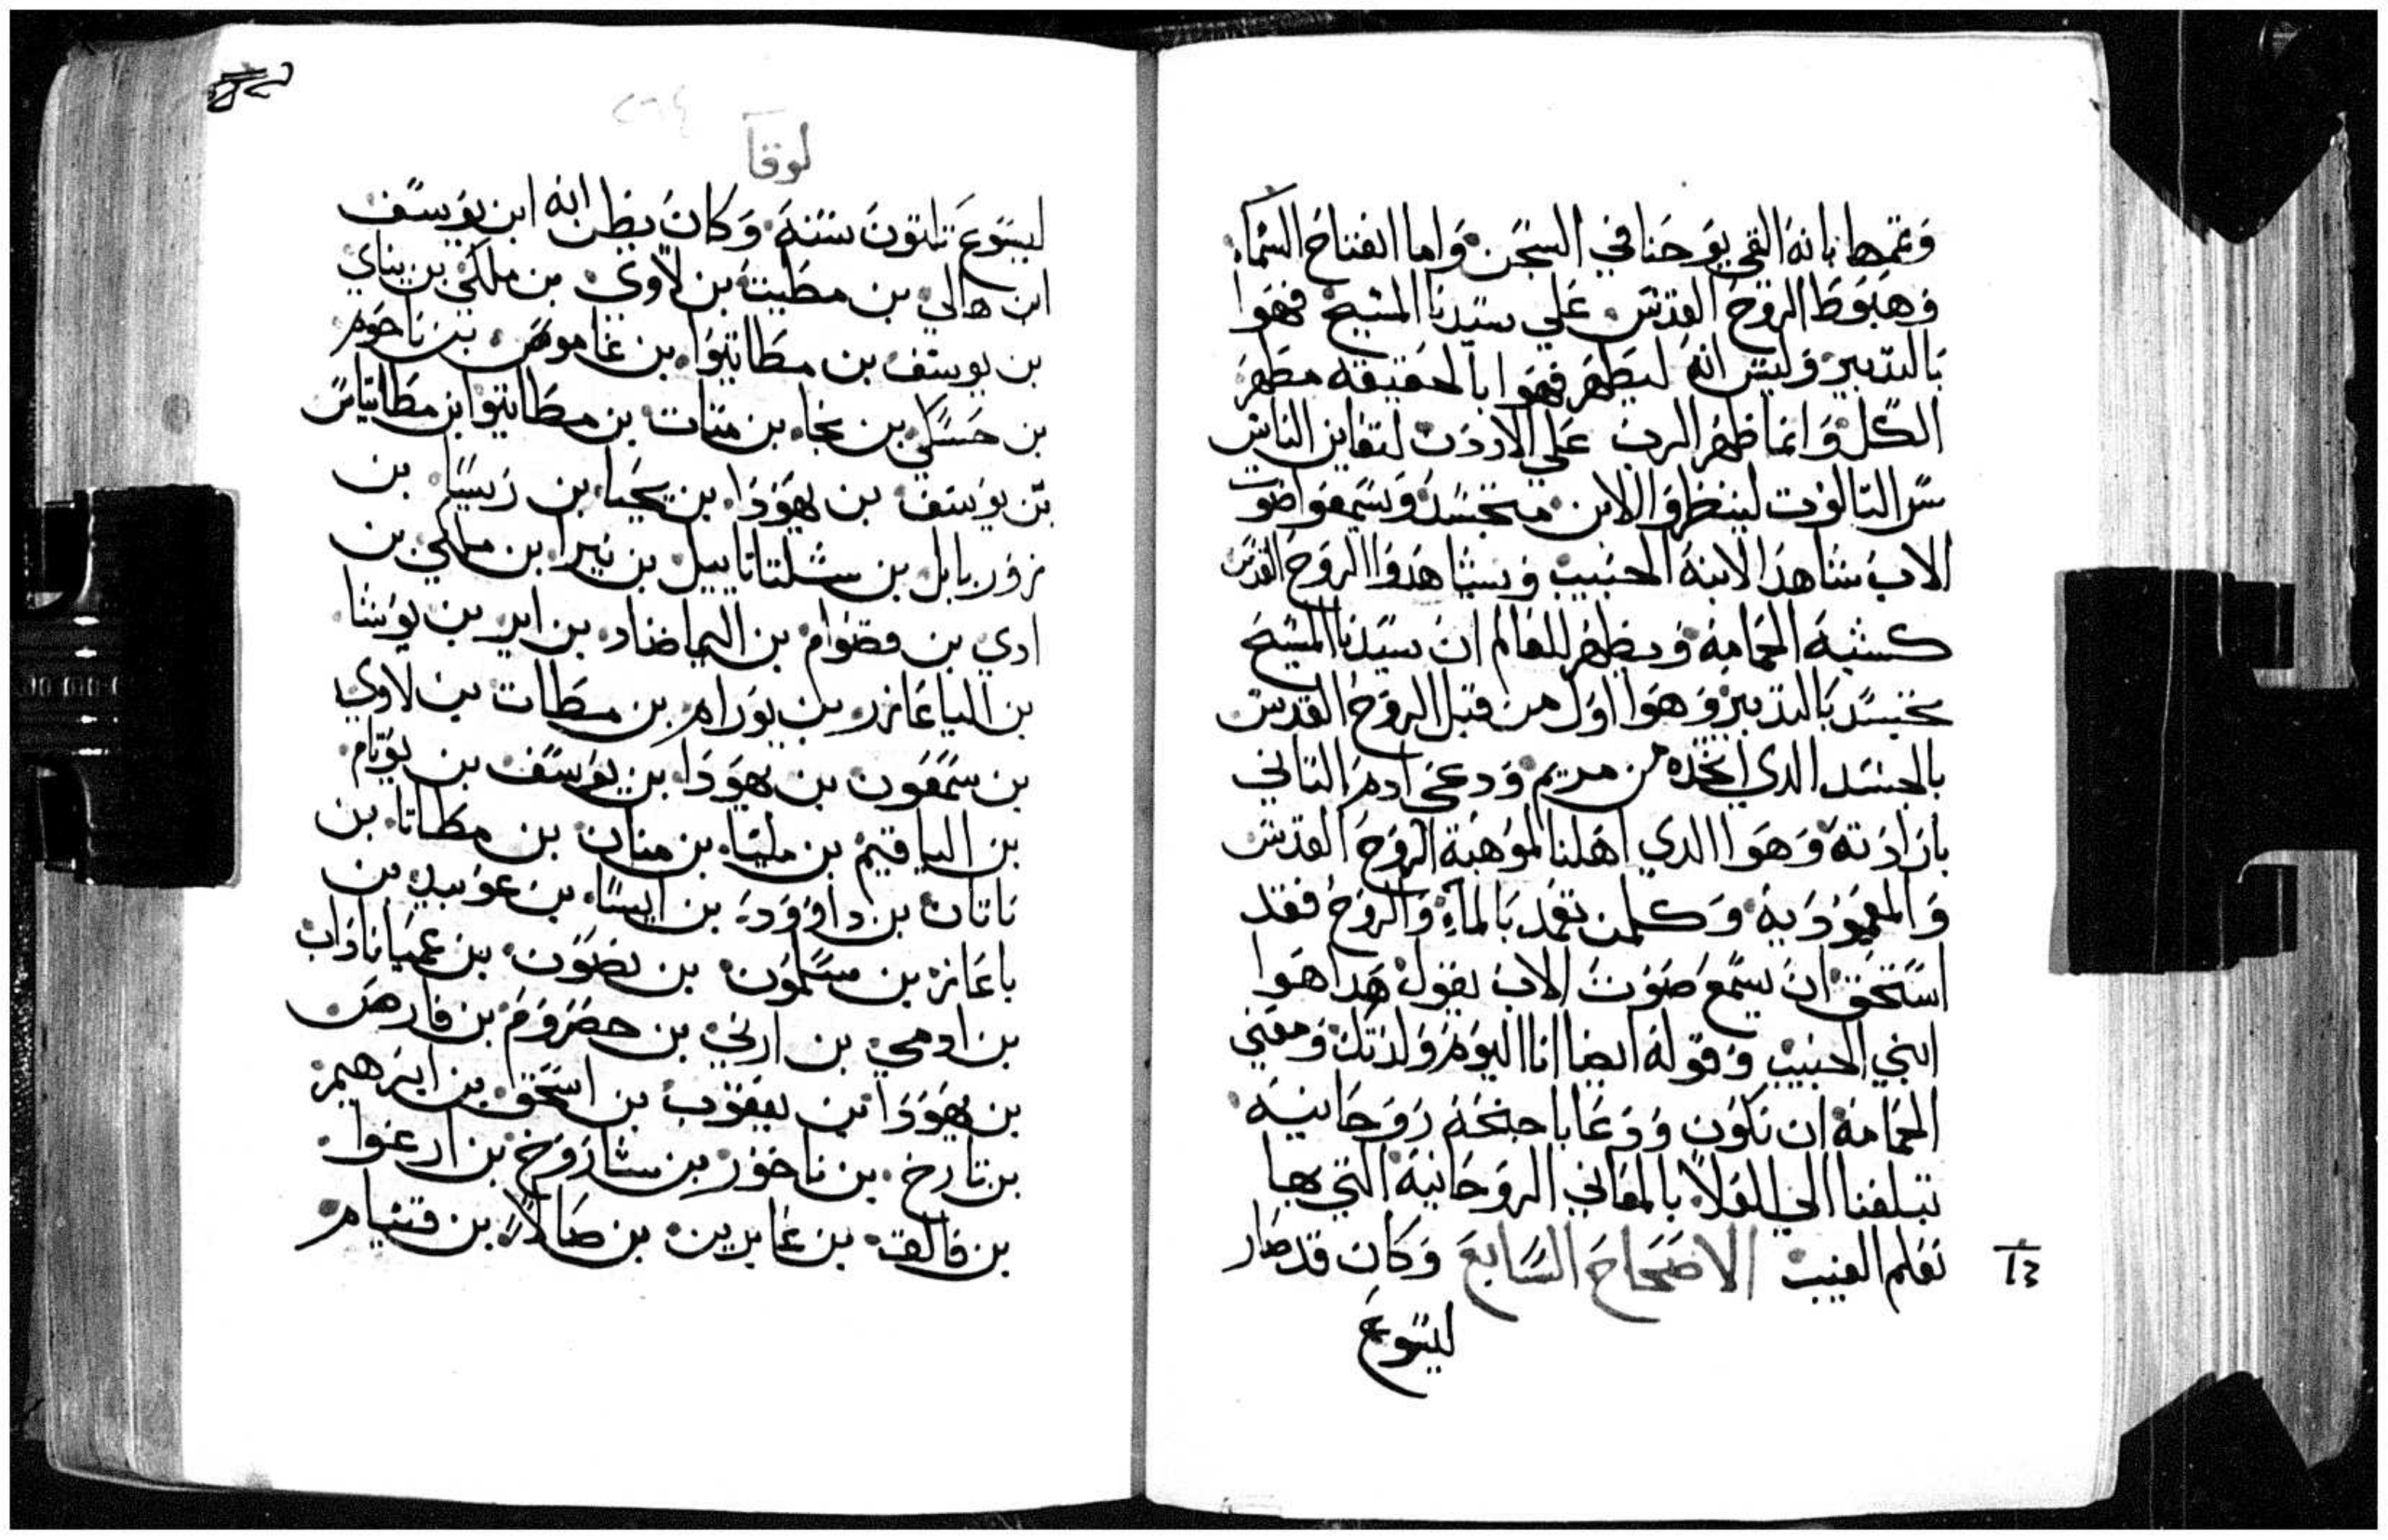 وتممها بانه القي يوحنا في السجن واما انفتاح السماء
وهبوط الروح القدس علي سيدنا المسيح فهوا
بالتدبير وليس انه ليطهر فهوا بالحقيقه مطهر
الكل وانما ظهر الرب علي الاردن لتعاين الناس
سر التالوت لينظروا الابن متجسد ويسمعوا صوت
الاب شاهدا لابنه الحبيب ويشاهدوا الروح القدس
كشبه الحمامه ويظهر للعالم ان سيدنا المسيح
تجسد بالتدبير وهوا اول من قبل الروح القدس
بالجسد الدي اتخده من مريم ودعي ادم التاني
بارادته وهوا الدي اهلنا لموهبة الروح القدس
والمعموديه وكلمن تعمد بالماء والروح فقد
استحق ان يسمع صوت الاب يقول هدا هوا
ابني الحبيب وقوله ايضا انا اليوم ولدتك ومعني
الحمامه ان نكون ودعا باجنحه روحانيه
تبلغنا الي العلا بالمعاني الروحانيه التي بها
نعلم الغيب الاصحاح السابع وكان قد صار
ليسوع
لوقا
ليسوع تلتون سنه وكان يظن انه ابن يوسف
ابن هالي بن مطيت بن لاوي بن ملكي بن يناي
بن يوسف بن مطاتيوا بن غاموص بن ناحوم
بن حسكي بن نجا بن متات بن مطاتيوا ابن مطاتياس
بن يوسف بن يهودا بن يحيا بن ريسا بن
زوربابل بن شلتاتاييل بن نيرا بن ملكي بن
ادي بن قصوام بن الماضاد بن اير بن يوشا
بن الياعازر بن يورام بن مطات بن لاوي
بن شمعون بن يهودا بن يوسف بن يونام
بن الياقيم بن مليا بن منان بن مطاتا بن
ناتان بن داوود بن ايسا بن عوبيد بن
باعاز بن سلمون بن نصون بن عميناداب
بن ادمي بن ارني بن حصروم بن فارص
بن يهودا بن يعقوب بن اسحق بن ابرهيم
بن تارخ بن ناحور بن شاروخ بن ارعوا
بن فالق بن عابرين بن صالا بن قنيام